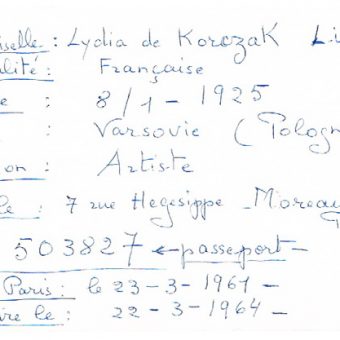 iselle : Lydia de Korczak Li
alité : Française
e : 8/1 - 1925
: Varsovie (Pologn
on : Artiste
le : 7 rue Hegesippe - Moreau
503827 ← passeport -
Paris : le 23 - 3 - 1961 -
ire le : 22 - 3 - 1964 -